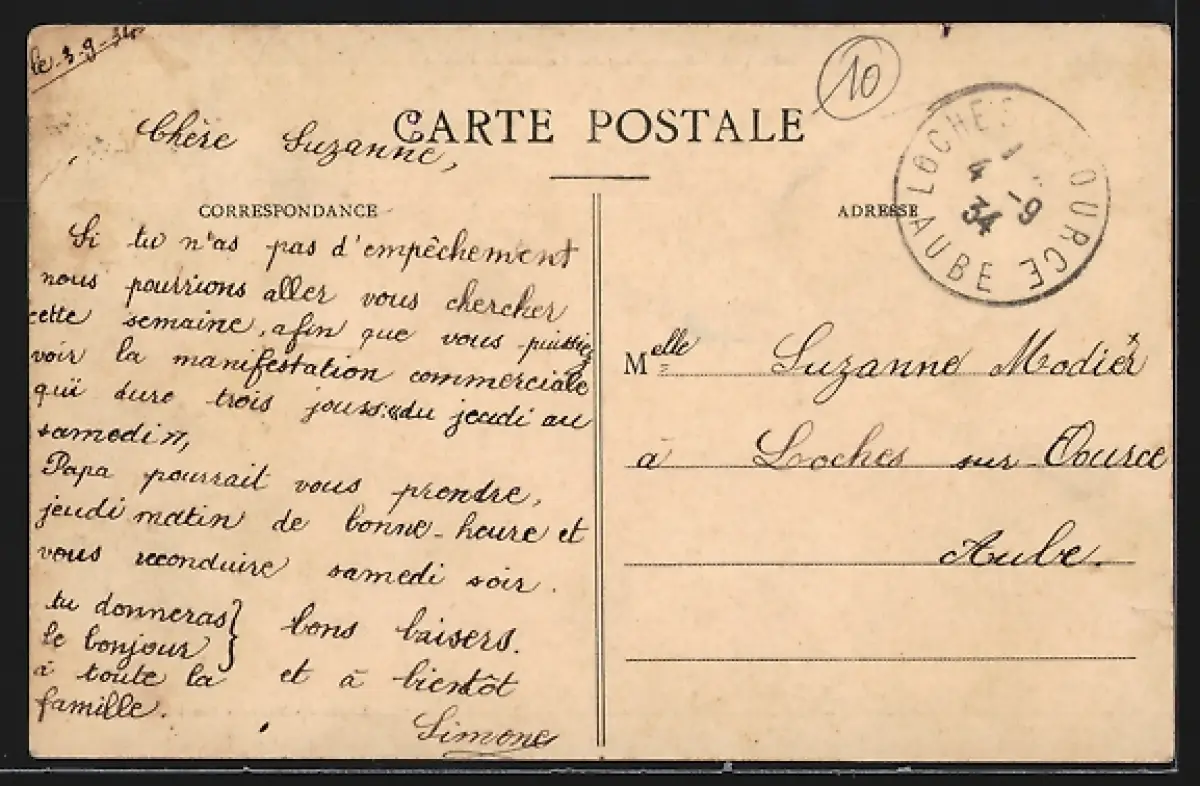 le 3-9-34
10
CARTE POSTALE
Chère Suzanne,
CORRESPONDANCE
Si tu n'as pas d'empêchement
nous pourrions aller vous chercher
cette semaine, afin que vous puissiez
voir la manifestation commerciale
qui dure trois jours: «du jeudi au
samedi»,
Papa pourrait vous prendre,
jeudi matin de bonne-heure et
vous reconduire samedi soir.
tu donneras
le bonjour
à toute la
famille.
bons baisers.
et à bientôt
Simone
ADRESSE
LOCHES OURCE
4 -9
34
AUBE
Melle Suzanne Modiér
à Loches sur-Ource
Aube.